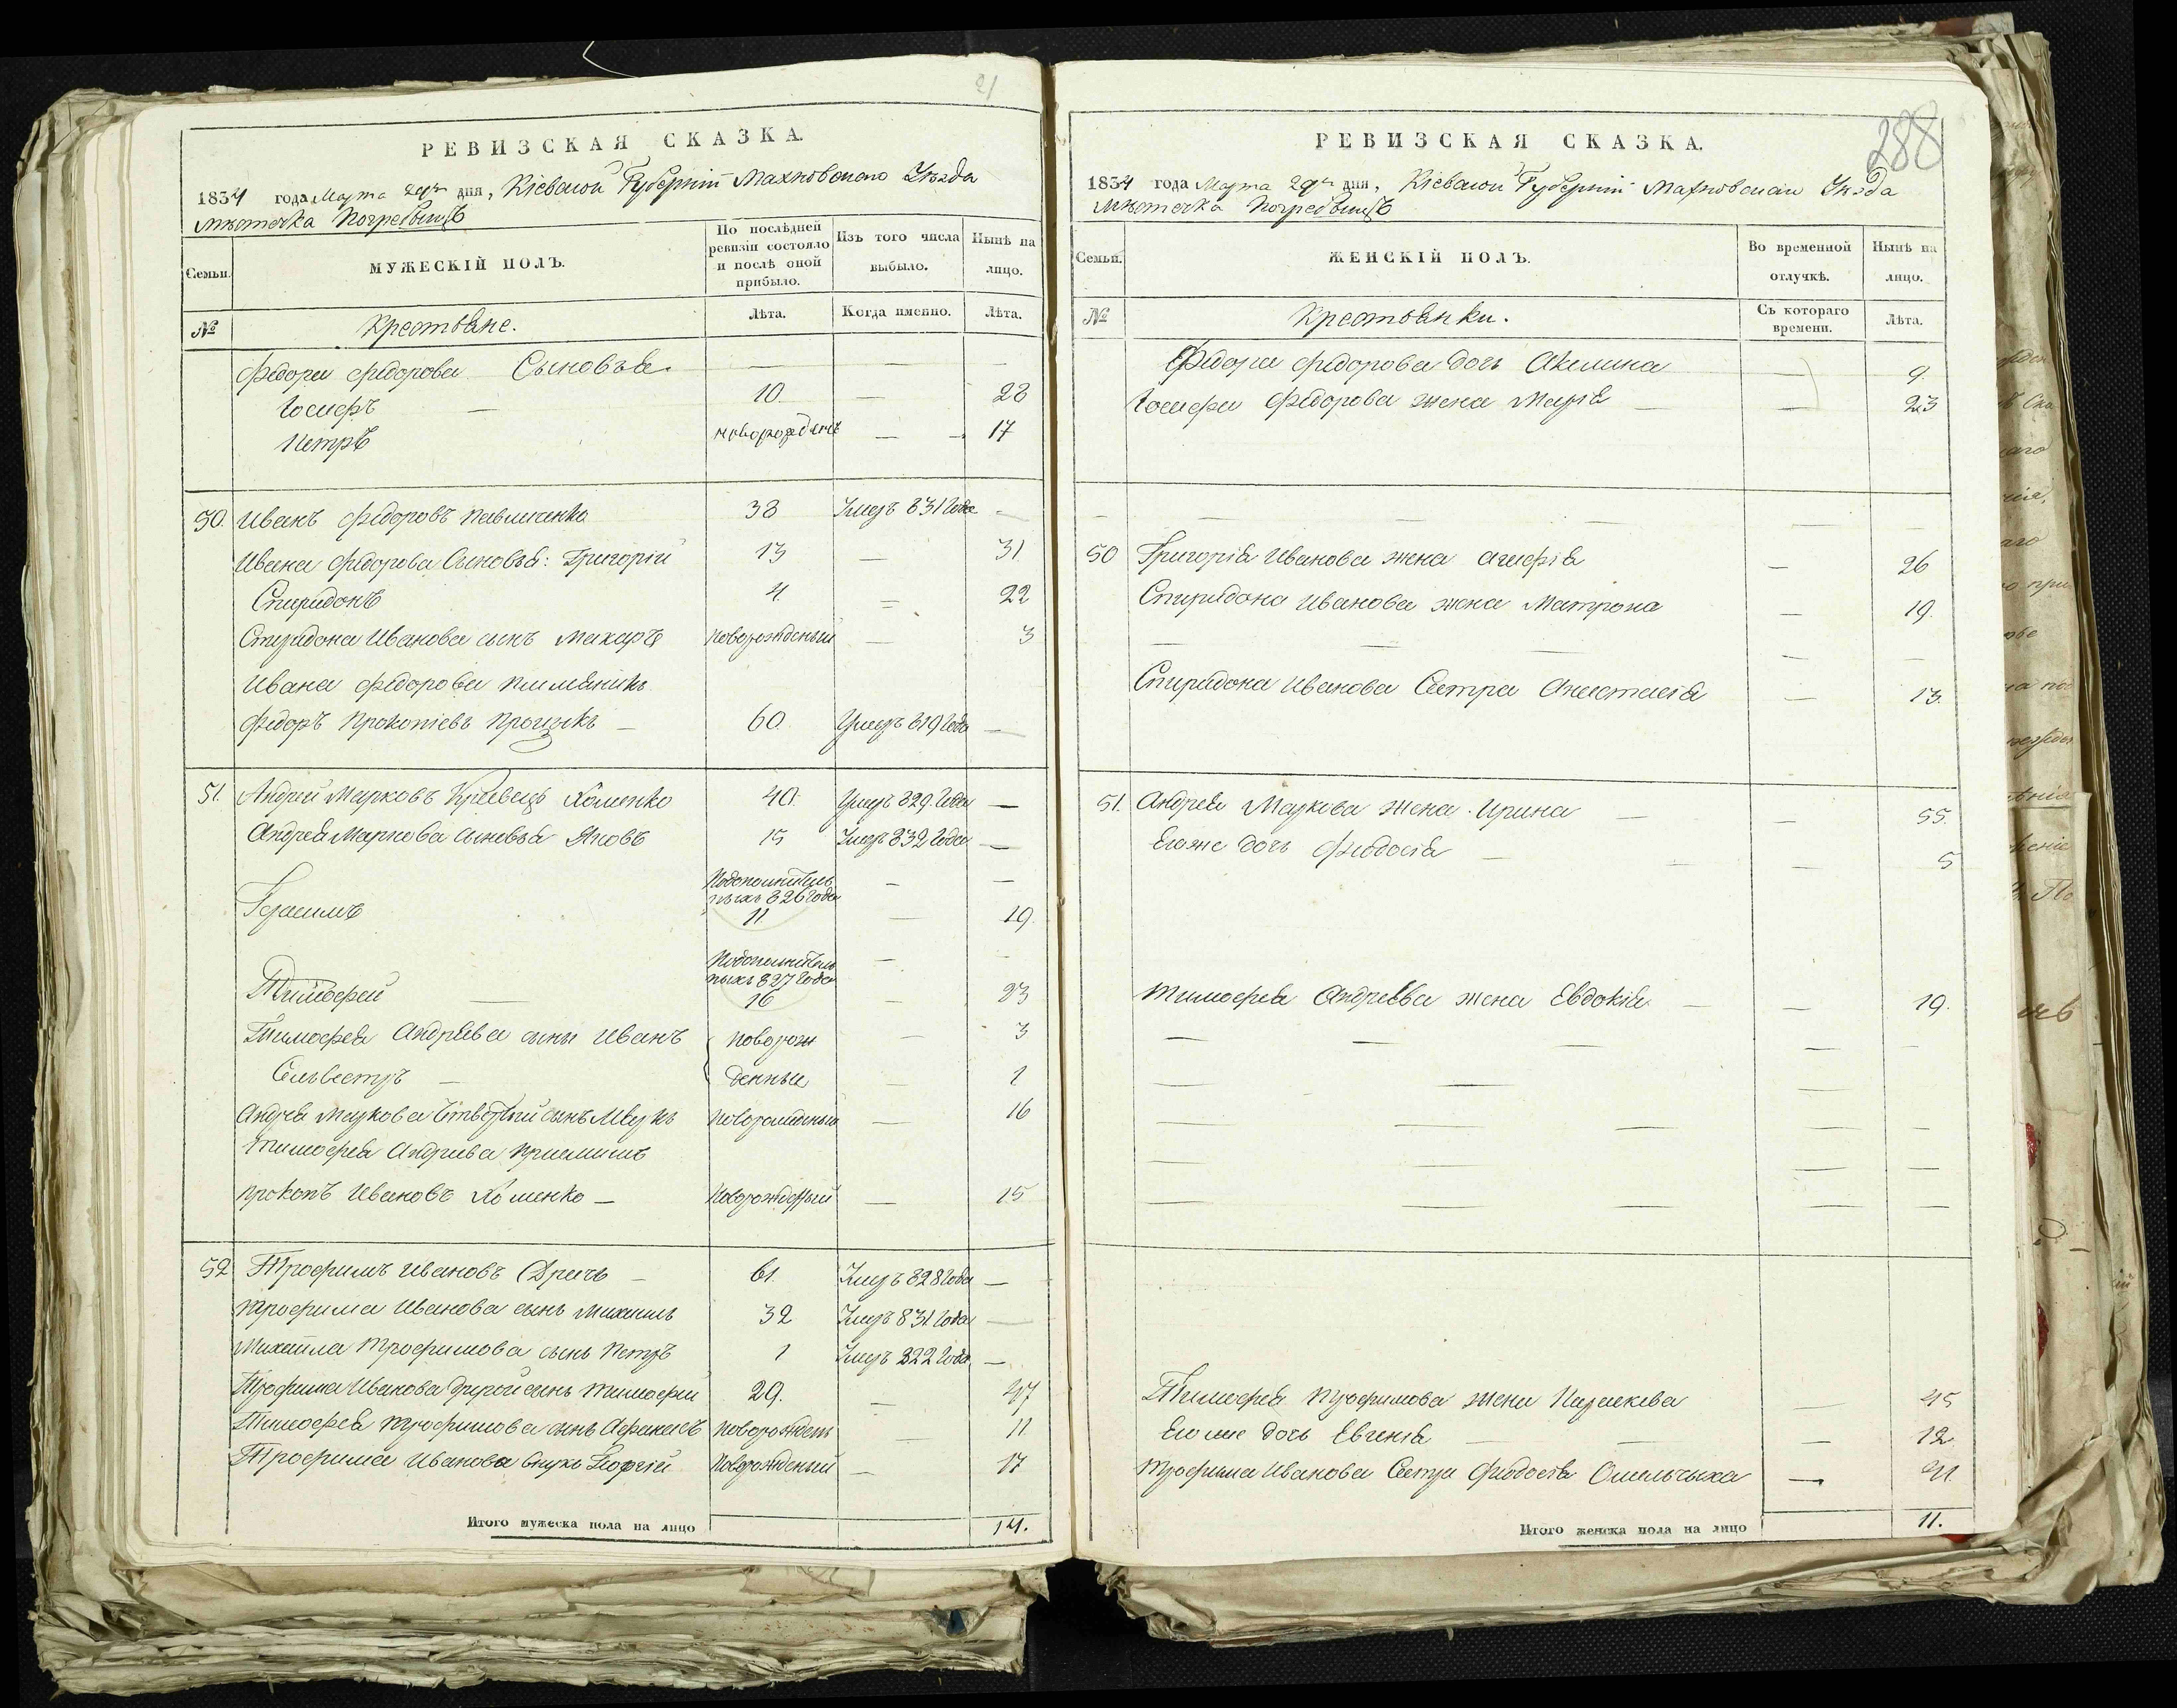 21
РЕВИЗСКАЯ СКАЗКА.
1834 года Марта 29го дня, Кіевской Губерніи Махновскаго Уѣзда
Мѣстечка Погребищъ
Семьи.
МУЖЕСКІЙ ПОЛЪ.
По послѣдней ревизіи состояло и послѣ оной прибыло.
Изъ того числа выбыло.
Нынѣ на лицо.
№
Крестьяне.
Лѣта.
Когда именно.
Лѣта.
Федора Федорова Сыновья — — —
Іосифъ — 10 — 28
Петръ новорожденъ — — 17
50. Иванъ Федоровъ Павличенко 38 Умеръ 831 Года —
Ивана Федорова Сыновья: Григорій 13 — 31
Спиридонъ 4 — 22
Спиридона Иванова сынъ Макаръ новорожденый — 3
Ивана Федорова племяникъ
Федоръ Прокопіевъ — 60. Умеръ 819 Года —
51. Андрей Марковъ Кравець Хоменко 40. Умеръ 829. Года —
Андрея Маркова сыновья Яковъ 15 Умеръ 832 Года —
Подополнитель
нымъ 826 Года — —
Герасимъ 11 — 19.
Подополнитель
нымъ 827 Года —
Тимофей — 16 — 23
Тимофея Андреева сыны Иванъ новорож — 3
Сильвестръ — денные — 1
Андрея Маркова Четвертый сынъ Маркъ новорожденый — 16
Тимофея Андреева приемышъ
Прокопъ Ивановъ Хоменко — Новорожденый — 15
52 Трофимъ Ивановъ Дричъ — 61. Умеръ 828 Года —
Трофима Иванова сынъ Михаилъ 32 Умеръ 831 Года —
Михайла Трофимова сынъ Петръ 1 Умеръ 822 Года —
Трофима Иванова Другой сынъ Тимофей 29. — 47
Тимофея Трофимова сынъ Афанасъ новорожденъ — 11
Трофима Иванова внукъ Георгій Новорожденый — 17
Итого мужеска пола на лицо 14.
288
РЕВИЗСКАЯ СКАЗКА.
1834 года Марта 29го дня, Кіевской Губерніи Махновскаго Уѣзда
Мѣстечка Погребищъ
Семьи.
ЖЕНСКІЙ ПОЛЪ.
Во временной отлучкѣ.
Нынѣ на лицо.
№
Крестьянки.
Съ котораго времени.
Лѣта.
Федора Федорова дочь Акилина — 9.
Іосифа Федорова жена Марія — — 23
— — — — — —
50 Григорія Иванова жена Агафія — 26
Спиридона Иванова жена Матрона — 19.
— — — — —
Спиридона Иванова Сестра Анастасія — 13.
51. Андрея Маркова жена Ирина — — 55.
Егоже дочь Феодосія — — — 5
Тимофея Андреева жена Евдокія — — 19.
— — — — —
— — —
— — — — —
— — — — —
— — — — —
Тимофея Трофимова жена Параскева — 45
Его же дочь Евгенія — — — 12
Трофима Иванова Сестра Феодосія Омельчыха — 41.
Итого женска пола на лицо 11.